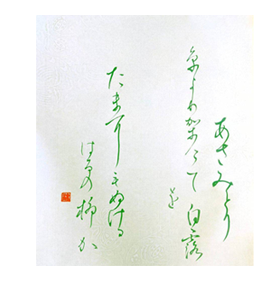 あさみとり
糸よりかけて白露
を
たまにもぬける
はるの柳か